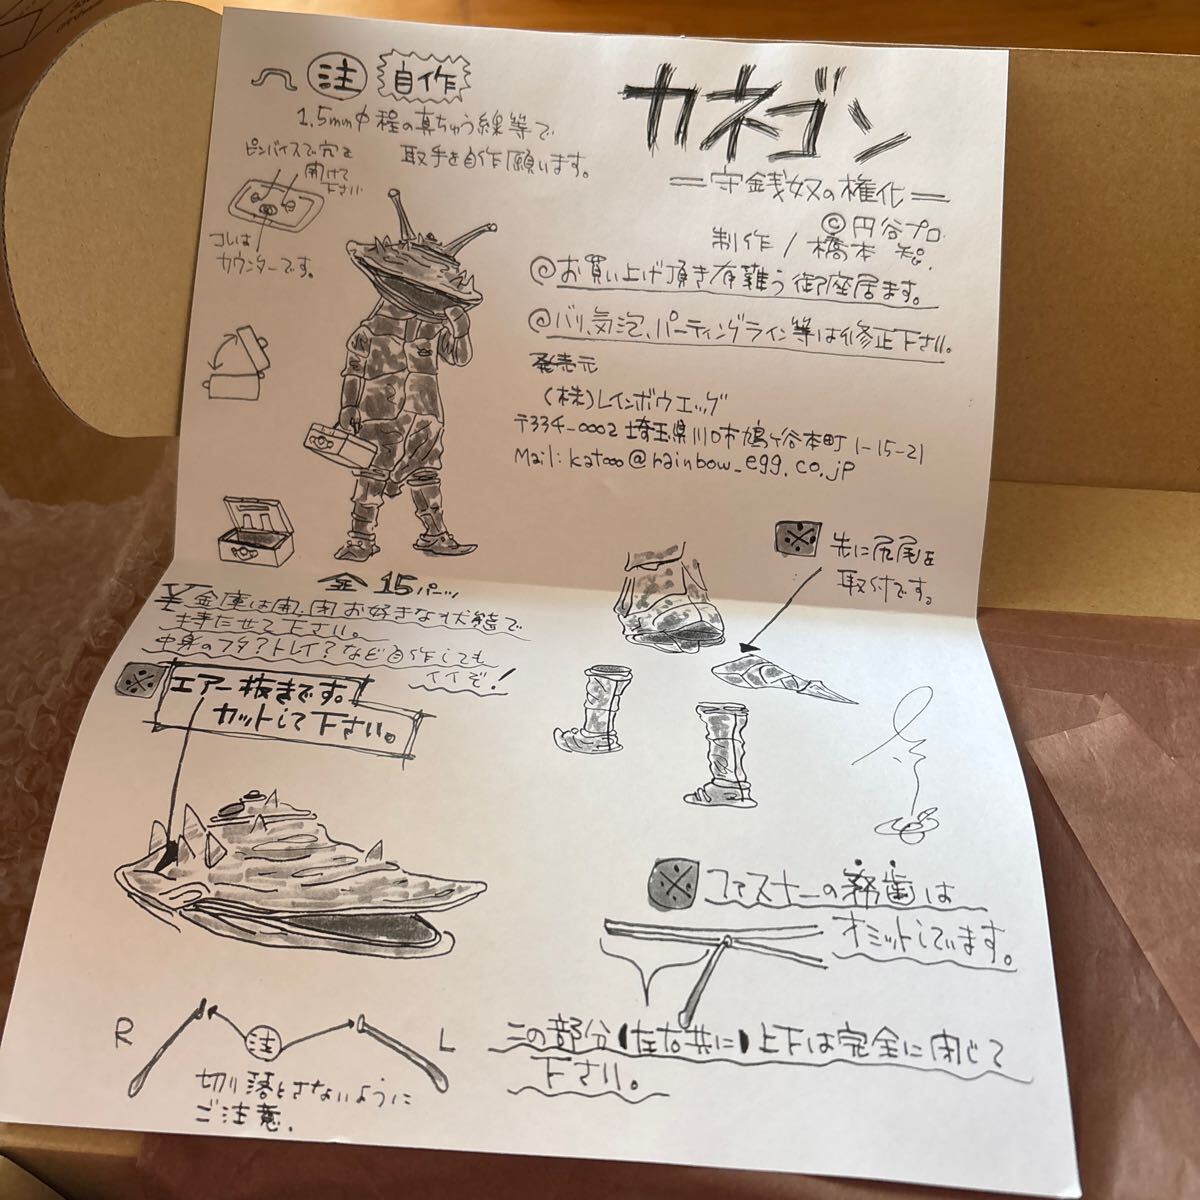 注 自作
1.5mmΦ程の真ちゅう線等で
取手を自作願います。
ピンバイスで穴を
開けて
下さい
コレは
カウンターです。
カネゴン
=守銭奴の権化=
©円谷プロ
制作/橋本 智.
@お買い上げ頂き有難う御座居ます。
@バリ、気泡、パーティングライン等は修正下さい。
発売元
(株)レインボウエッグ
〒334-0002 埼玉県川口市鳩ヶ谷本町1-15-21
Mail:katooo@rainbow_egg.co.jp
全15パーツ
¥金庫は開、閉お好きな状態で
持たせて下さい。
中身のフタ?トレイ?など自作しても
イイぞ!
※ 先に尻尾を
取付です。
※ エアー抜きです。
カットして下さい。
※ コマスナーの務歯は
オミットしています。
この部分(左右共に)上下は完全に閉じて
下さい。
R 注 L
切り落とさないように
ご注意.